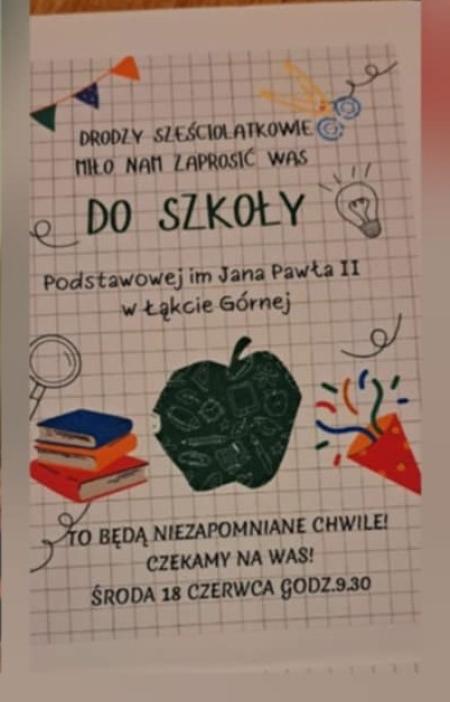 DRODZY SZEŚCIOLATKOWIE
MIŁO NAM ZAPROSIĆ WAS
DO SZKOŁY
Podstawowej im Jana Pawła II
w Łąkcie Górnej
TO BĘDĄ NIEZAPOMNIANE CHWILE!
CZEKAMY NA WAS!
ŚRODA 18 CZERWCA GODZ.9.30